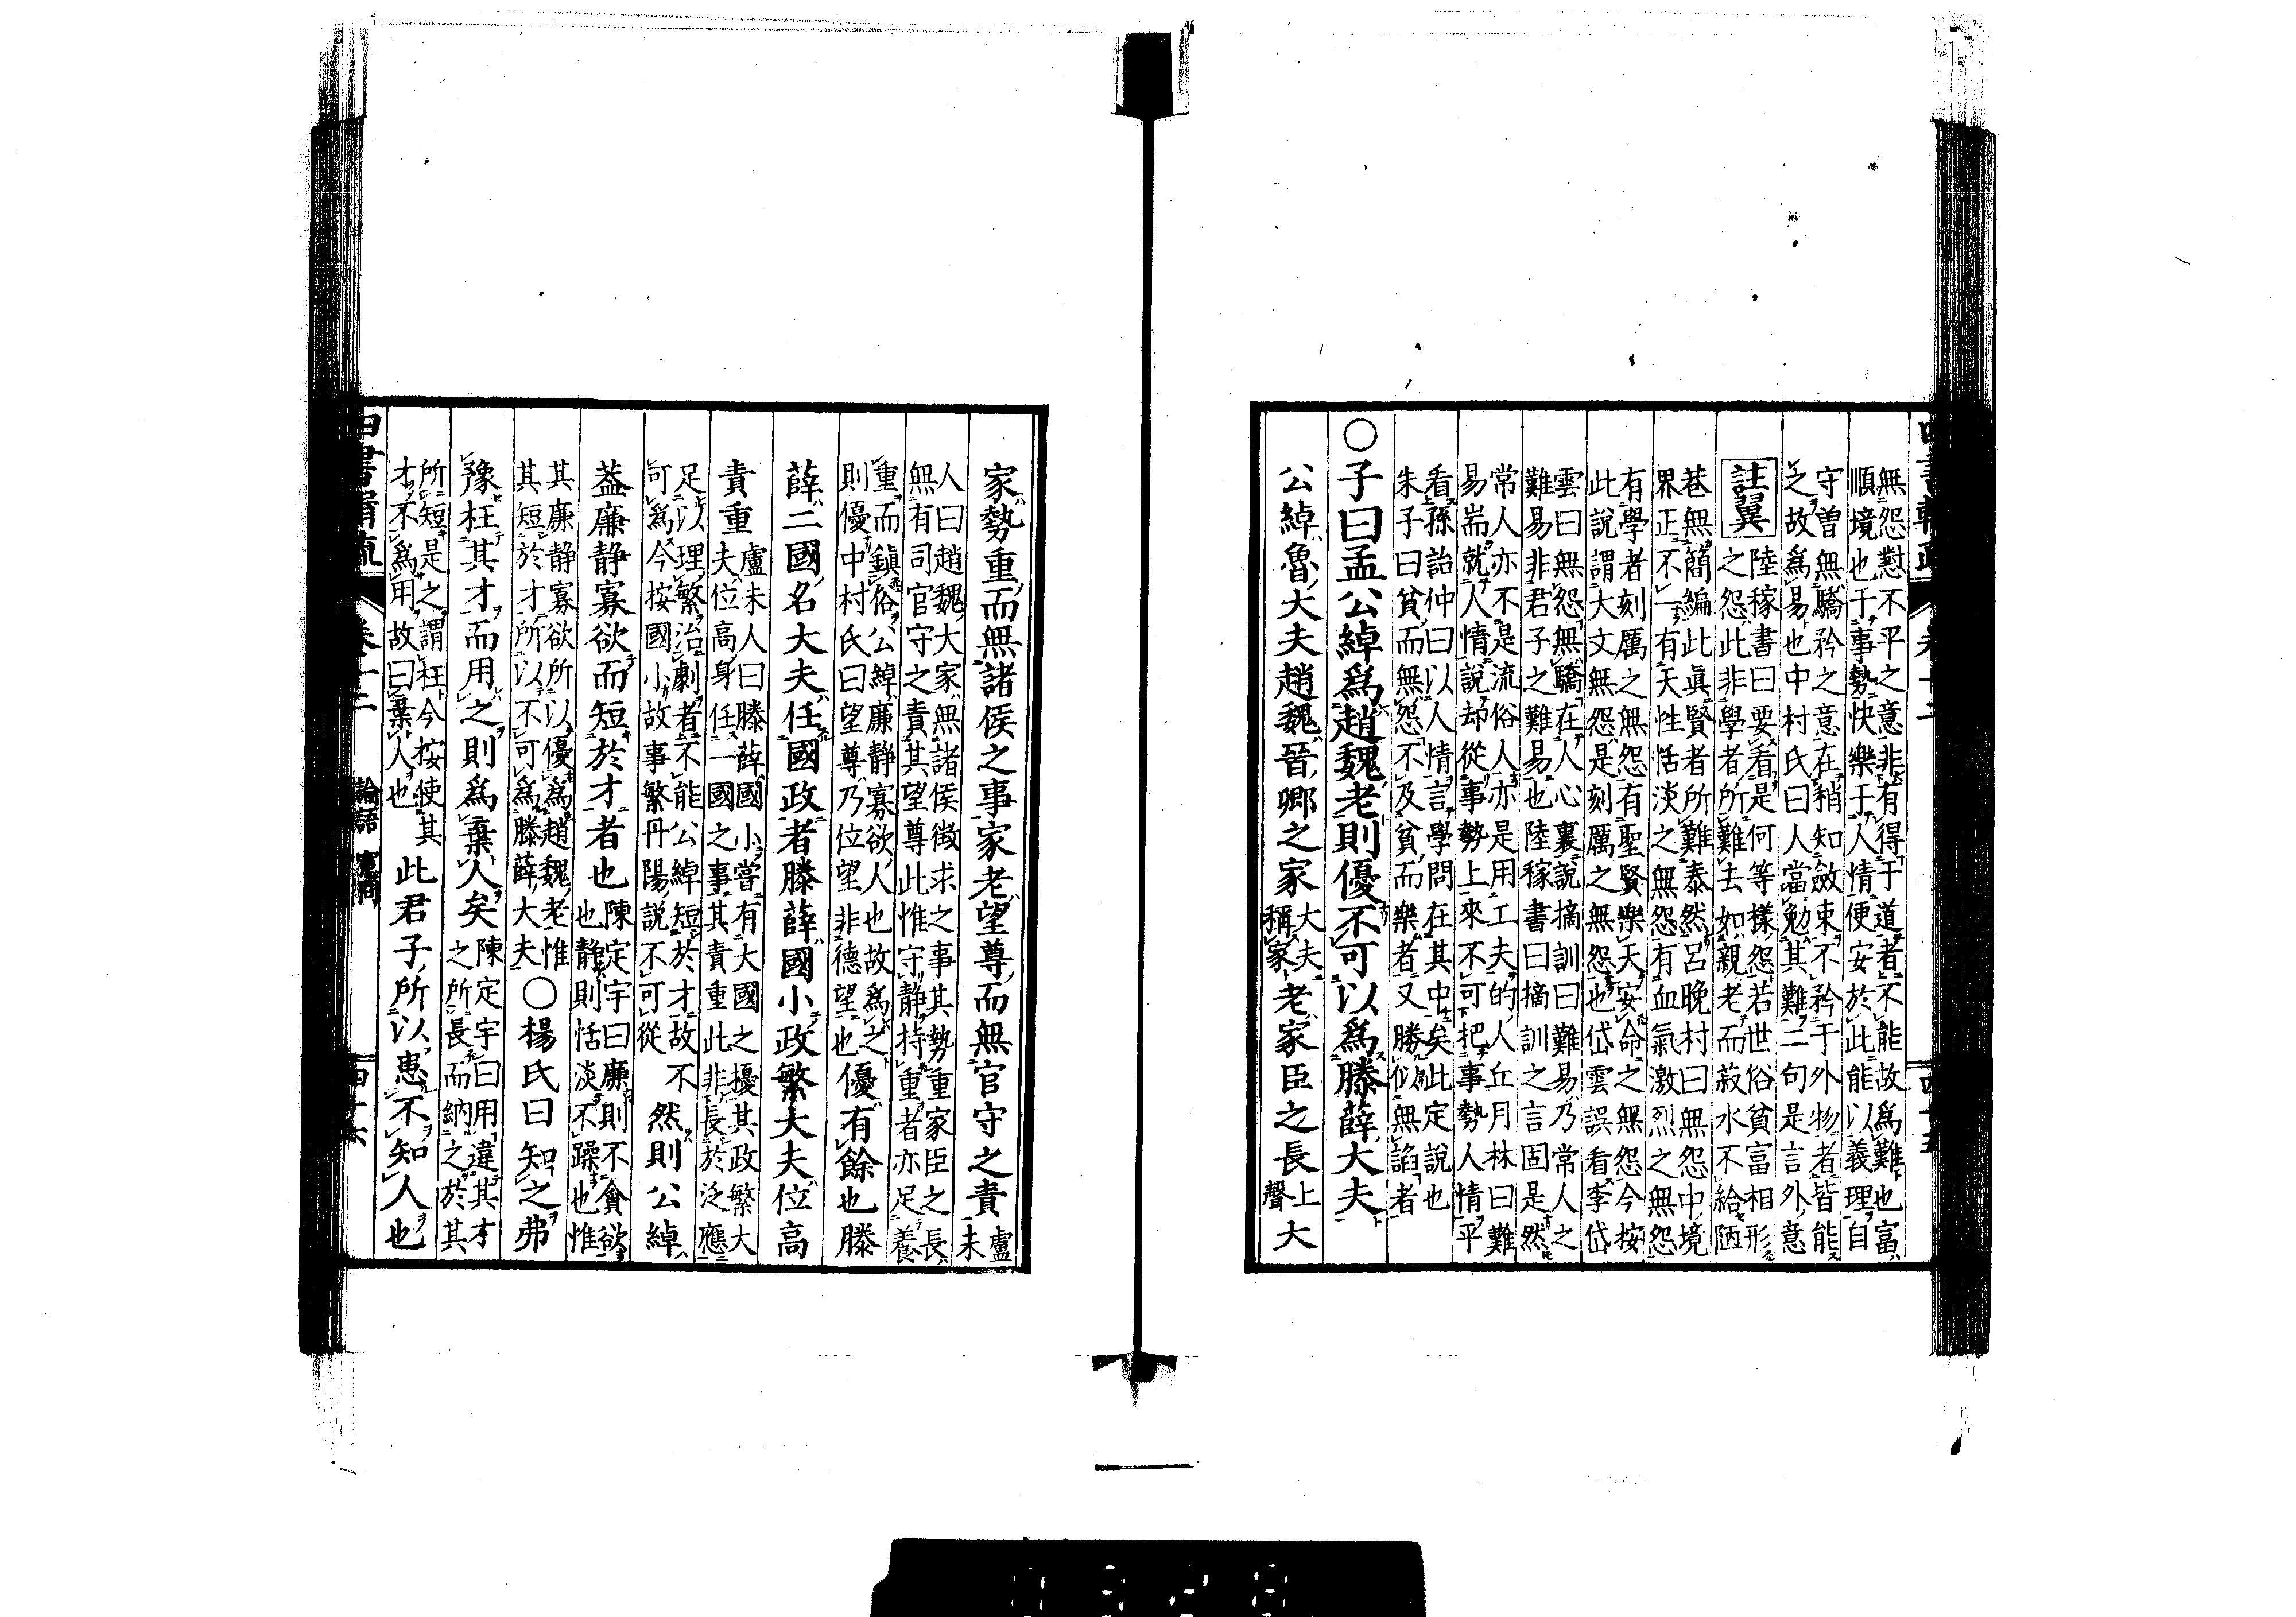 無怨懟不平之意非有得于道者不能故爲難也富
順境也于事勢快樂于人情便安於此能以義理自
守曽無驕矜之意在稍知斂束不矜于外物者皆能
之故爲易也中村氏曰人當勉其難二句是言外意
註翼
陸稼書曰要看是何等樣怨若世俗貧富相形
之怨此非學者所難去如親老而菽水不給陋
巷無簡編此眞賢者所難泰然呂晚村曰無怨中境
界正不一有天性恬淡之無怨有血氣激烈之無怨
有學者刻厲之無怨有聖賢樂天安命之無怨今按
此説謂大文無怨是刻厲之無怨也岱雲誤看李岱
雲曰無怨無驕在人心裏説摘訓曰難易乃常人之
難易非君子之難易也陸稼書曰摘訓之言固是然
常人亦不是流俗人亦是用工夫的人丘月林曰難
易耑就人情説却從事勢上來不可把事勢人情平
看孫詒仲曰以人情言學問在其中矣此定説也
朱子曰貧而無怨不及貧而樂者又勝似無諂者
○子曰孟公綽爲趙魏老則優不可以爲滕薛大夫
公綽魯大夫趙魏晉卿之家
大夫
稱家
老家臣之長
上
聲
大
家勢重而無諸侯之事家老望尊而無官守之責
盧
未
人曰趙魏大家無諸侯徴求之事其勢重家臣之長
無有司官守之責其望尊此惟守静持重者亦足養
重而鎮俗公綽廉静寡欲人也故爲之
則優中村氏曰望尊乃位望非德望也
優有餘也滕
薛二國名大夫任國政者滕薛國小政繁大夫位高
責重
盧未人曰滕薛國小當有大國之擾其政繁大
夫位高身任一國之事其責重此非長於泛應
足以理繁治劇者不能公綽短於才故不
可爲今按國小故事繁丹陽説不可從
然則公綽
葢廉静寡欲而短於才者也
陳定宇曰廉則不貪欲
也静則恬淡不躁也惟
其廉静寡欲所以優爲趙魏老惟
其短於才所以不可爲滕薛大夫
○楊氏曰知之弗
豫枉其才而用之則爲棄人矣
陳定宇曰用違其才
之所長而納之於其
所短是之謂枉今按使其
才不爲用故曰棄人也
此君子所以患不知人也
論語